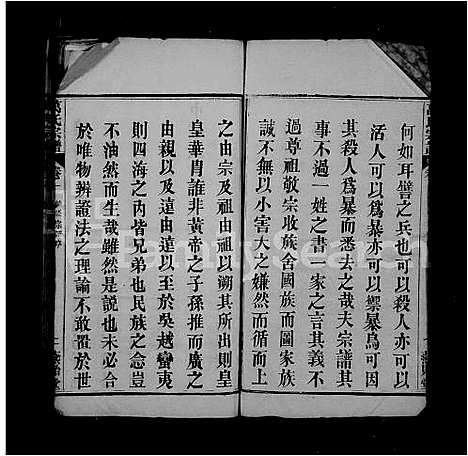 何如耳譬之兵也可以殺人亦可以
活人可以爲暴亦可以禦暴烏可因
其殺人爲暴而悉去之哉夫宗譜其
事不過一姓之書一家之言其義不
過尊祖敬宗收族舍國族而圖家族
誠不無以小害大之嫌然而循而上
之由宗及祖由祖以溯其所出則皇
皇華胄誰非黃帝之子孫推而廣之
由親以及遠由遠以至於吳越蠻夷
則四海之內皆兄弟也民族之念豈
不油然而生哉雖然是説也未必合
於唯物辨證法之理論不敢置於世
氏宗譜
FamilySearch